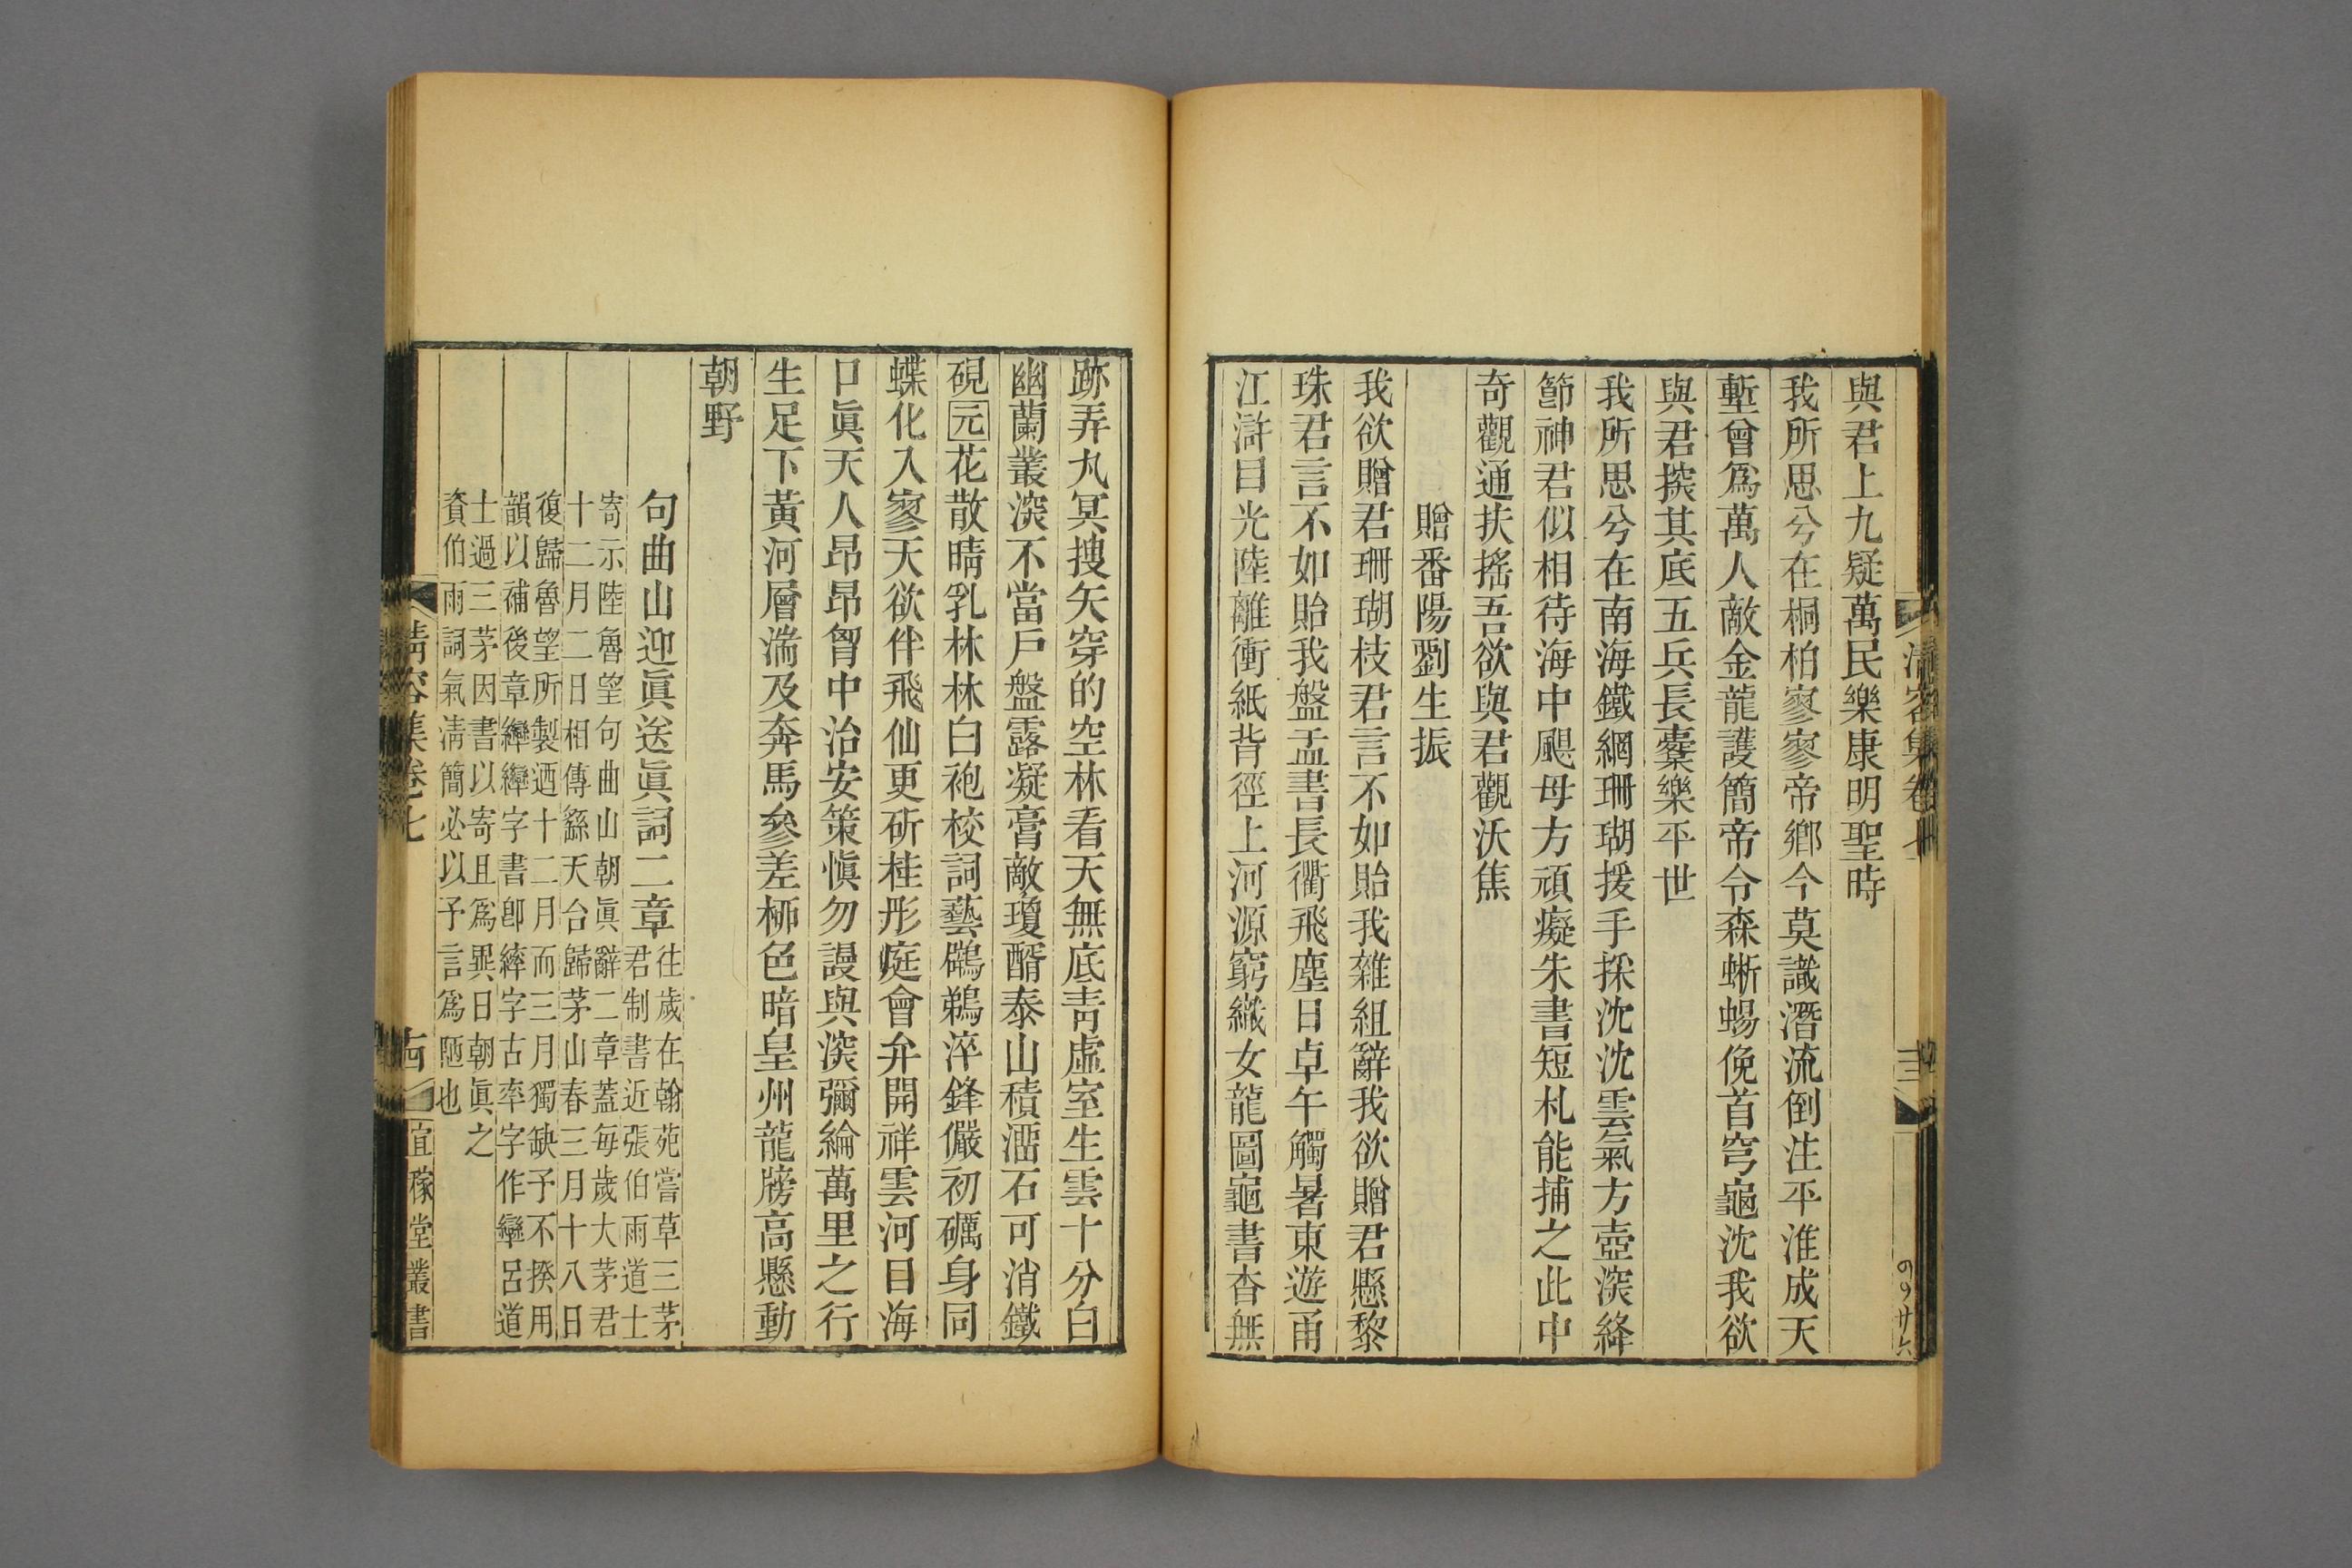 與君上九疑萬民樂康明聖時
我所思兮在桐柏寥寥帝鄉今莫識潛流倒注平淮成天
塹曾爲萬人敵金龍護簡帝令森蜥蜴俛首穹龜沈我欲
與君探其底五兵長櫜樂平世
我所思兮在南海鐵網珊瑚援手採沈沈雲氣方壺深絳
節神君似相待海中颶母方頑癡朱書短札能捕之此中
奇觀通扶搖吾欲與君觀沃焦
贈番陽劉生振
我欲贈君珊瑚枝君言不如貽我雜組辭我欲贈君懸黎
珠君言不如貽我盤盂書長衢飛塵日卓午觸暑東遊甬
江滸目光陸離衝紙背徑上河源窮織女龍圖龜書杳無
跡弄丸冥搜矢穿的空林看天無底靑虛室生雲十分白
幽蘭叢深不當戶盤露凝膏敵瓊醑泰山積溜石可消鐵
硯元花散晴乳林林白袍校詞藝鷿鵜淬鋒儼初礪身同
蝶化入寥天欲伴飛仙更斫桂彤庭會弁開祥雲河目海
口眞天人昂昂胷中治安策愼勿謾與深彌綸萬里之行
生足下黃河層湍及奔馬參差柳色暗皇州龍牓高懸動
朝野
句曲山迎眞送眞詞二章
往歲在翰苑嘗草三茅
君制書近張伯雨道士
寄示陸魯望句曲山朝眞辭二章蓋每歲大茅君
十二月二日相傳繇天台歸茅山春三月十八日
復歸魯望所製迺十二月而三月獨缺予不揆用
韻以補後章纞繂字書卽繂字古率字作纞呂道
士過三茅因書以寄且爲異日朝眞之
資伯雨詞氣淸簡必以予言爲陋也
淸容集卷七
宜稼堂叢書